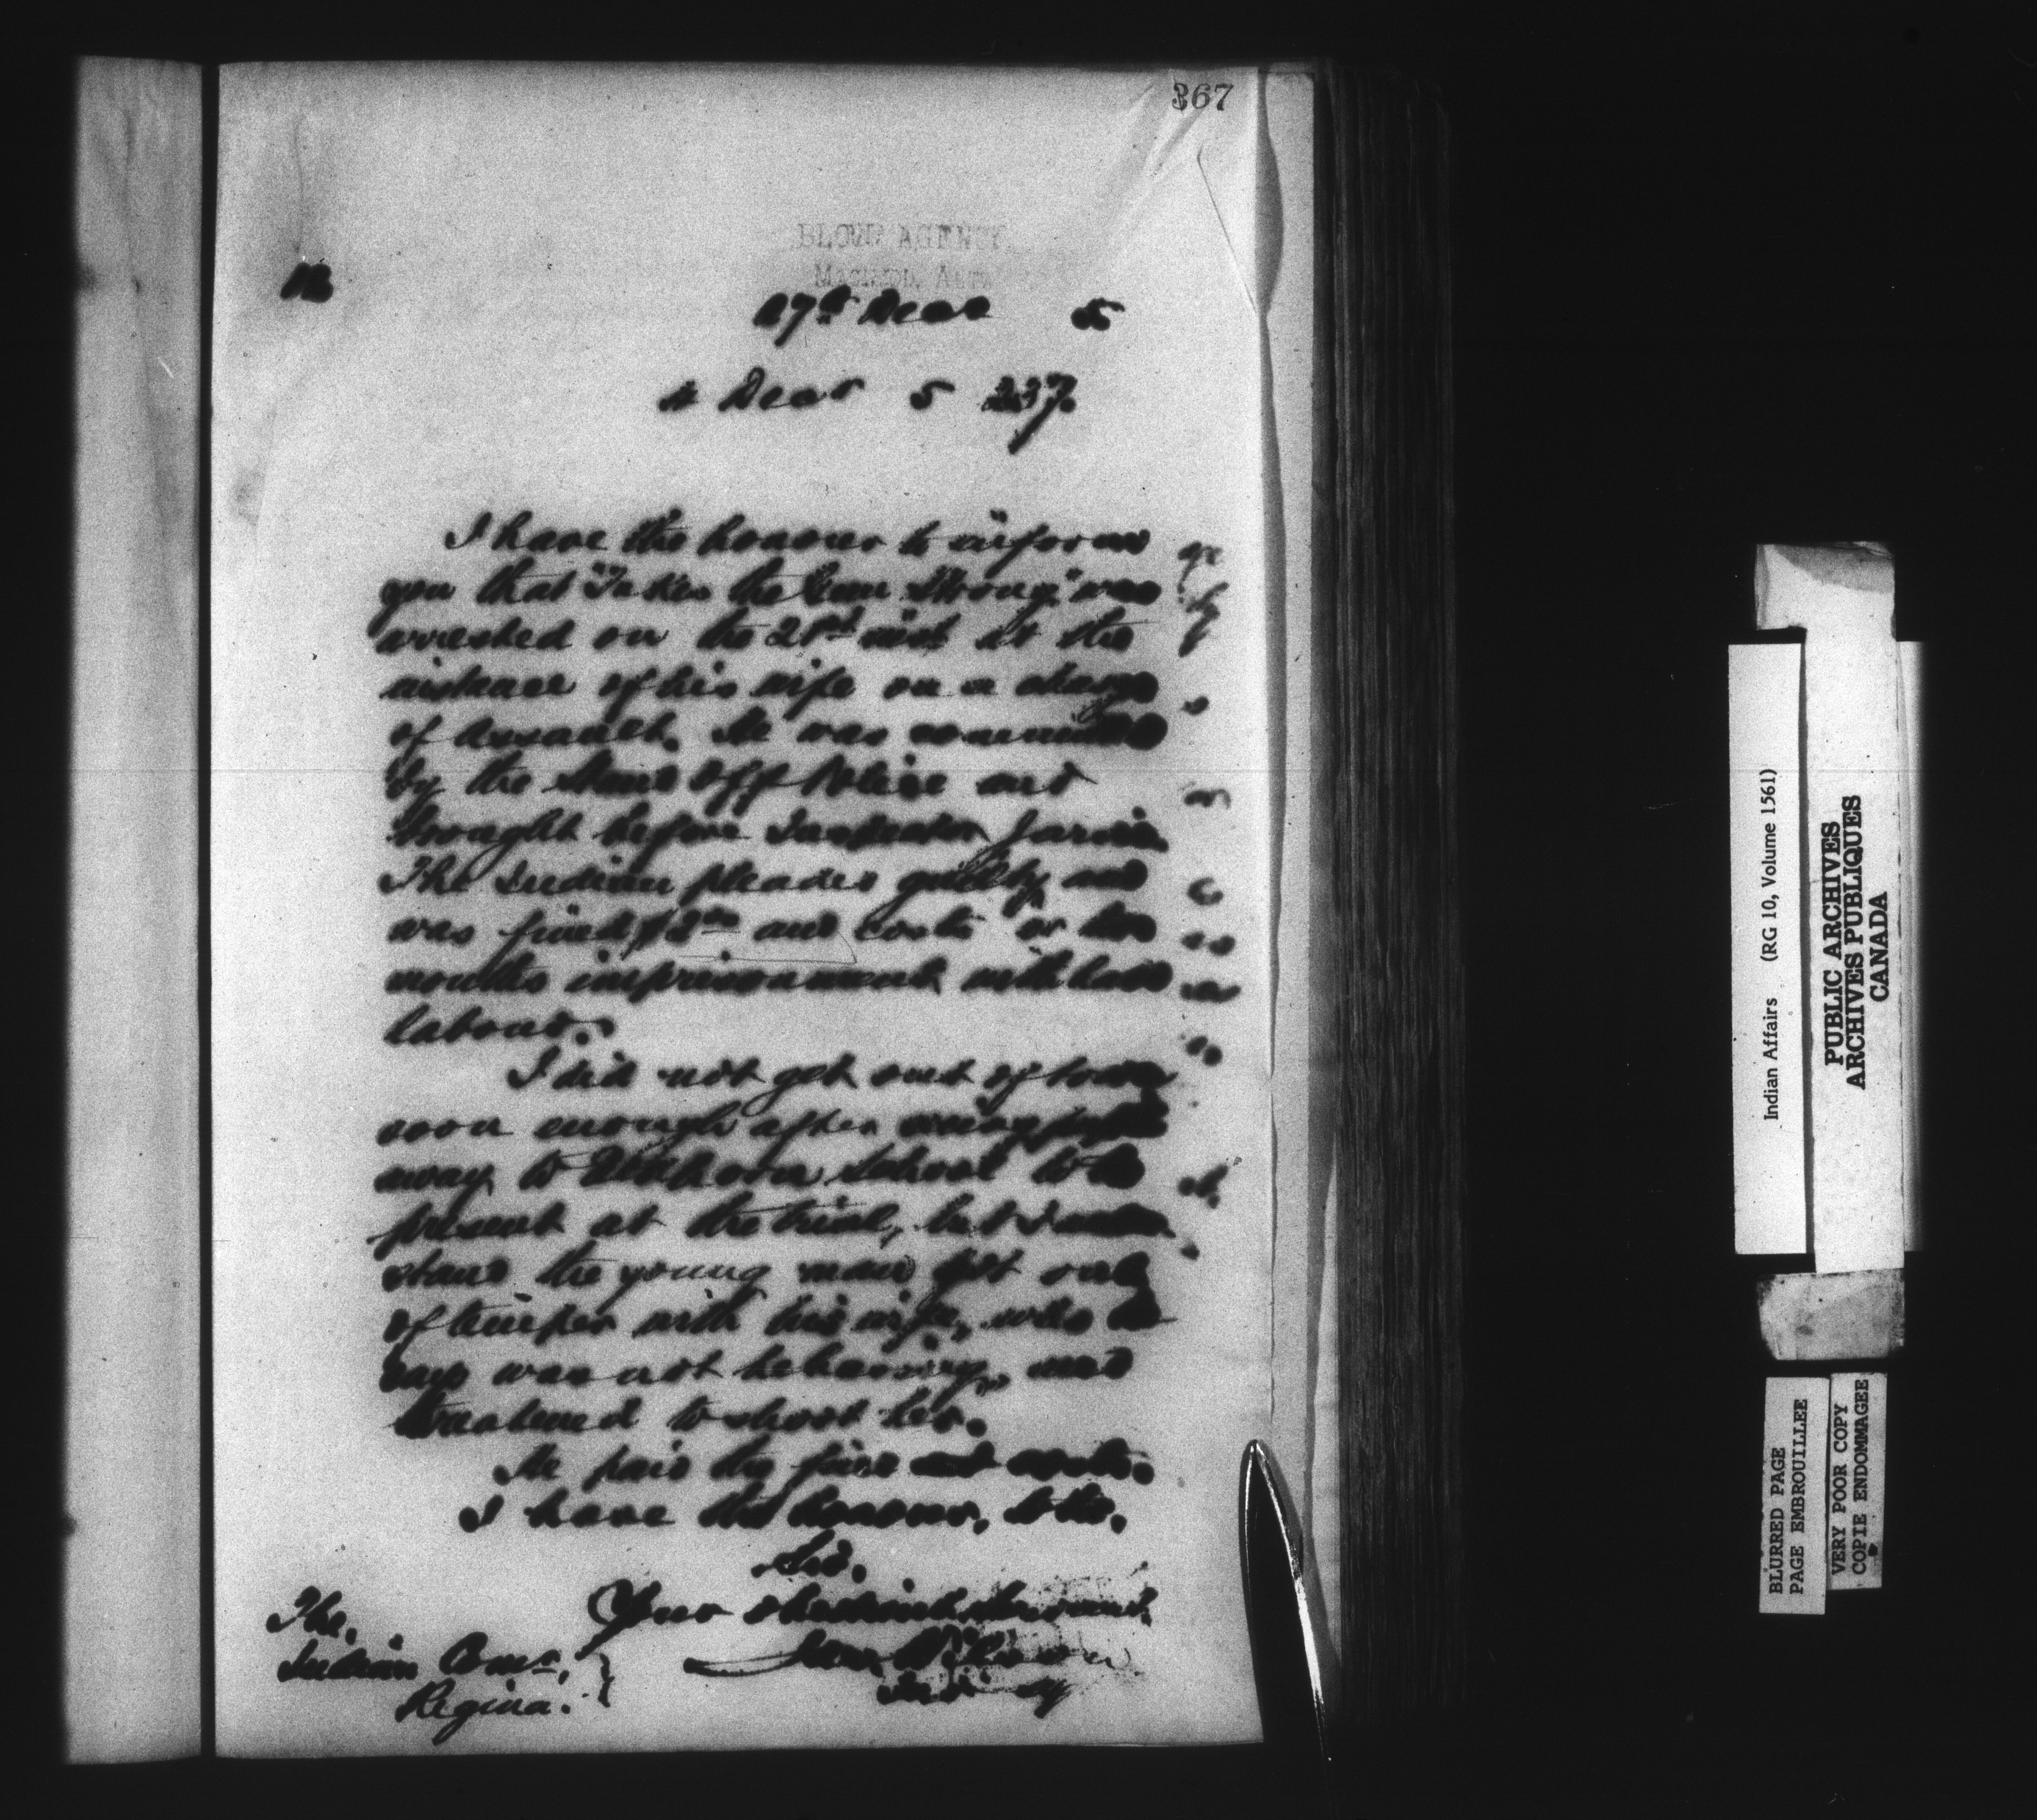 367
BLOOD AGENCY,
MACLEOD, ALTA.
27th Decr 5
4 Decr 5 237.
I have the honour to inform
you that "Takes the Gun Strong" was
arrested on the 21st inst at the
instance of his wife on a charge
of assault. He was
by the Stand Off Police and
brought before Inspector Jarvis.
The Indian pleaded guilty and
was fined and costs or two
months imprisonment with hard
labour.
I did not get out of town
soon enough after
away to Dunbow School to be
present at the trial, but I under
stand the young man got out
of temper with his wife, who he
says was not behaving, and
threatened to shoot her.
He paid the fine and costs.
I have the honour, to be,
Sir,
Your obedient servant,
Jas. Wilson
Ind Ag
The,
Indian Comr.
Regina.
Indian Affairs (RG 10, Volume 1561)
PUBLIC ARCHIVES
ARCHIVES PUBLIQUES
CANADA
BLURRED PAGE
PAGE EMBROUILLEE
VERY POOR COPY
COPIE ENDOMMAGEE